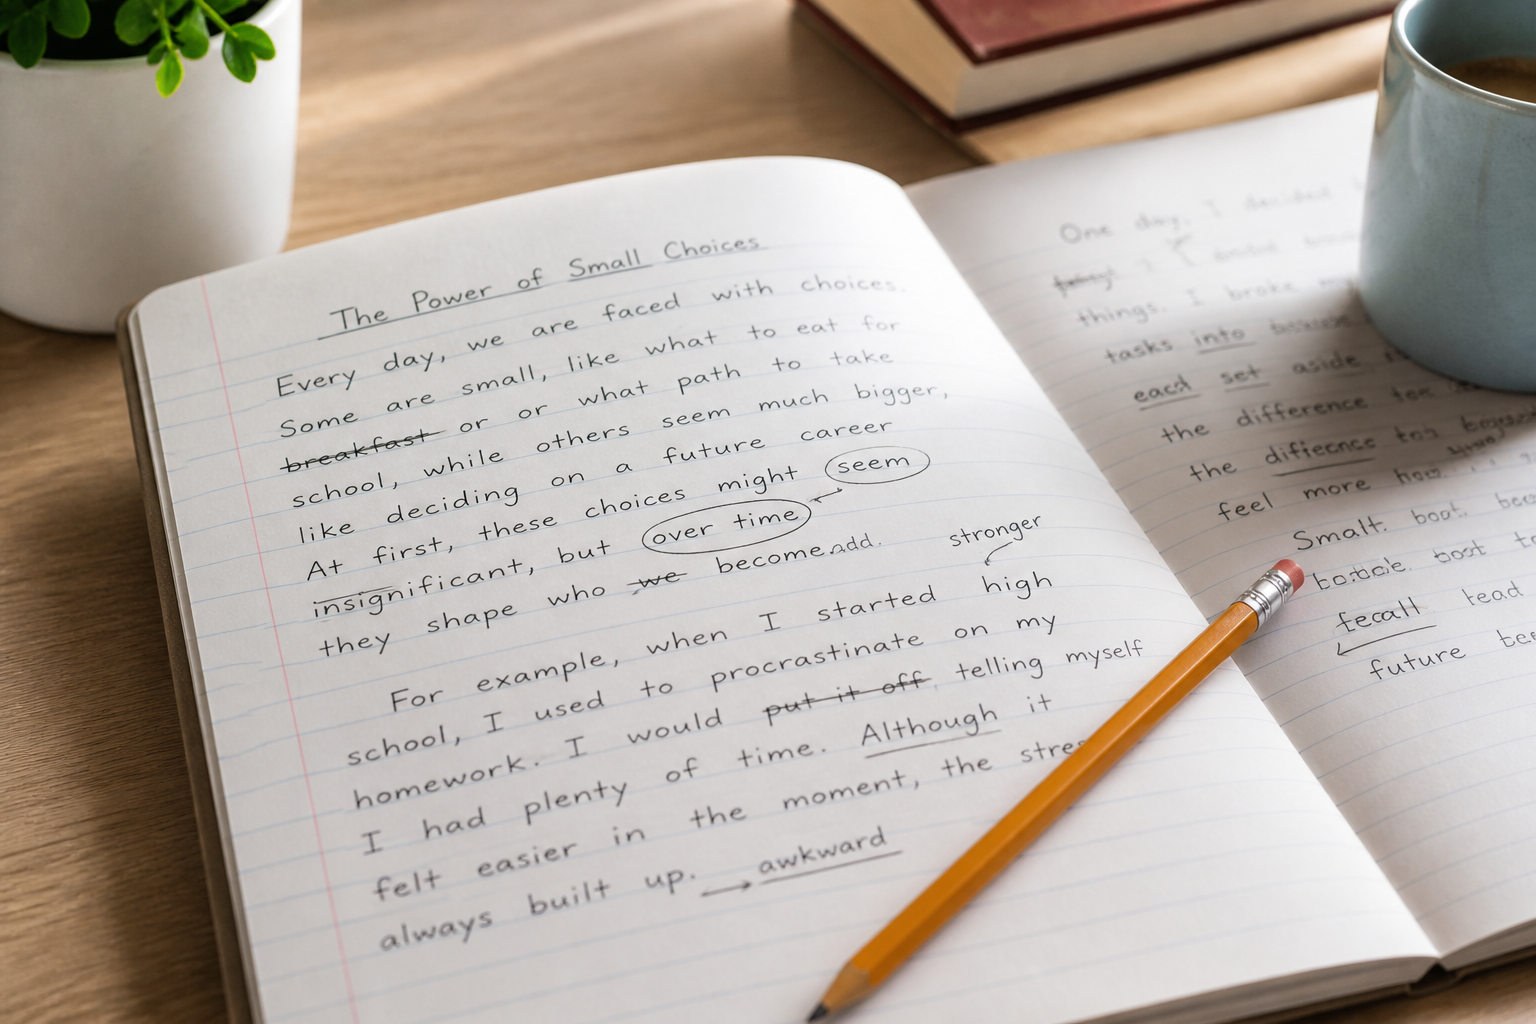 The Power of Small Choices
Every day, we are faced with choices.
Some are small, like what to eat for
breakfast or or what path to take
school, while others seem much bigger,
like deciding on a future career
At first, these choices might seem
insignificant, but over time
they shape who we become.add.
stronger
For example, when I started high
school, I used to procrastinate on my
homework. I would put it off telling myself
I had plenty of time. Although it
felt easier in the moment, the
always built up. awkward
One day, I decided
things. I broke
tasks into
each set aside
the difference
the
feel more
boot
boot
tead
future